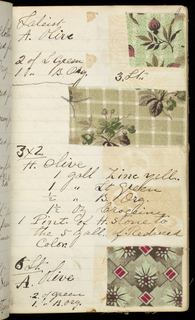 A. Olive
2 of Green
1 " B. Org.
3 Sh.
3x2
A. Olive
1 gall Zinc yell.
1 " Lt Green
1/2 " B. Org.
1 Pint of to
the 5 gall. of Reduced
Color
6 Sh.
A. Olive
2 of Green
1 " B. Org.